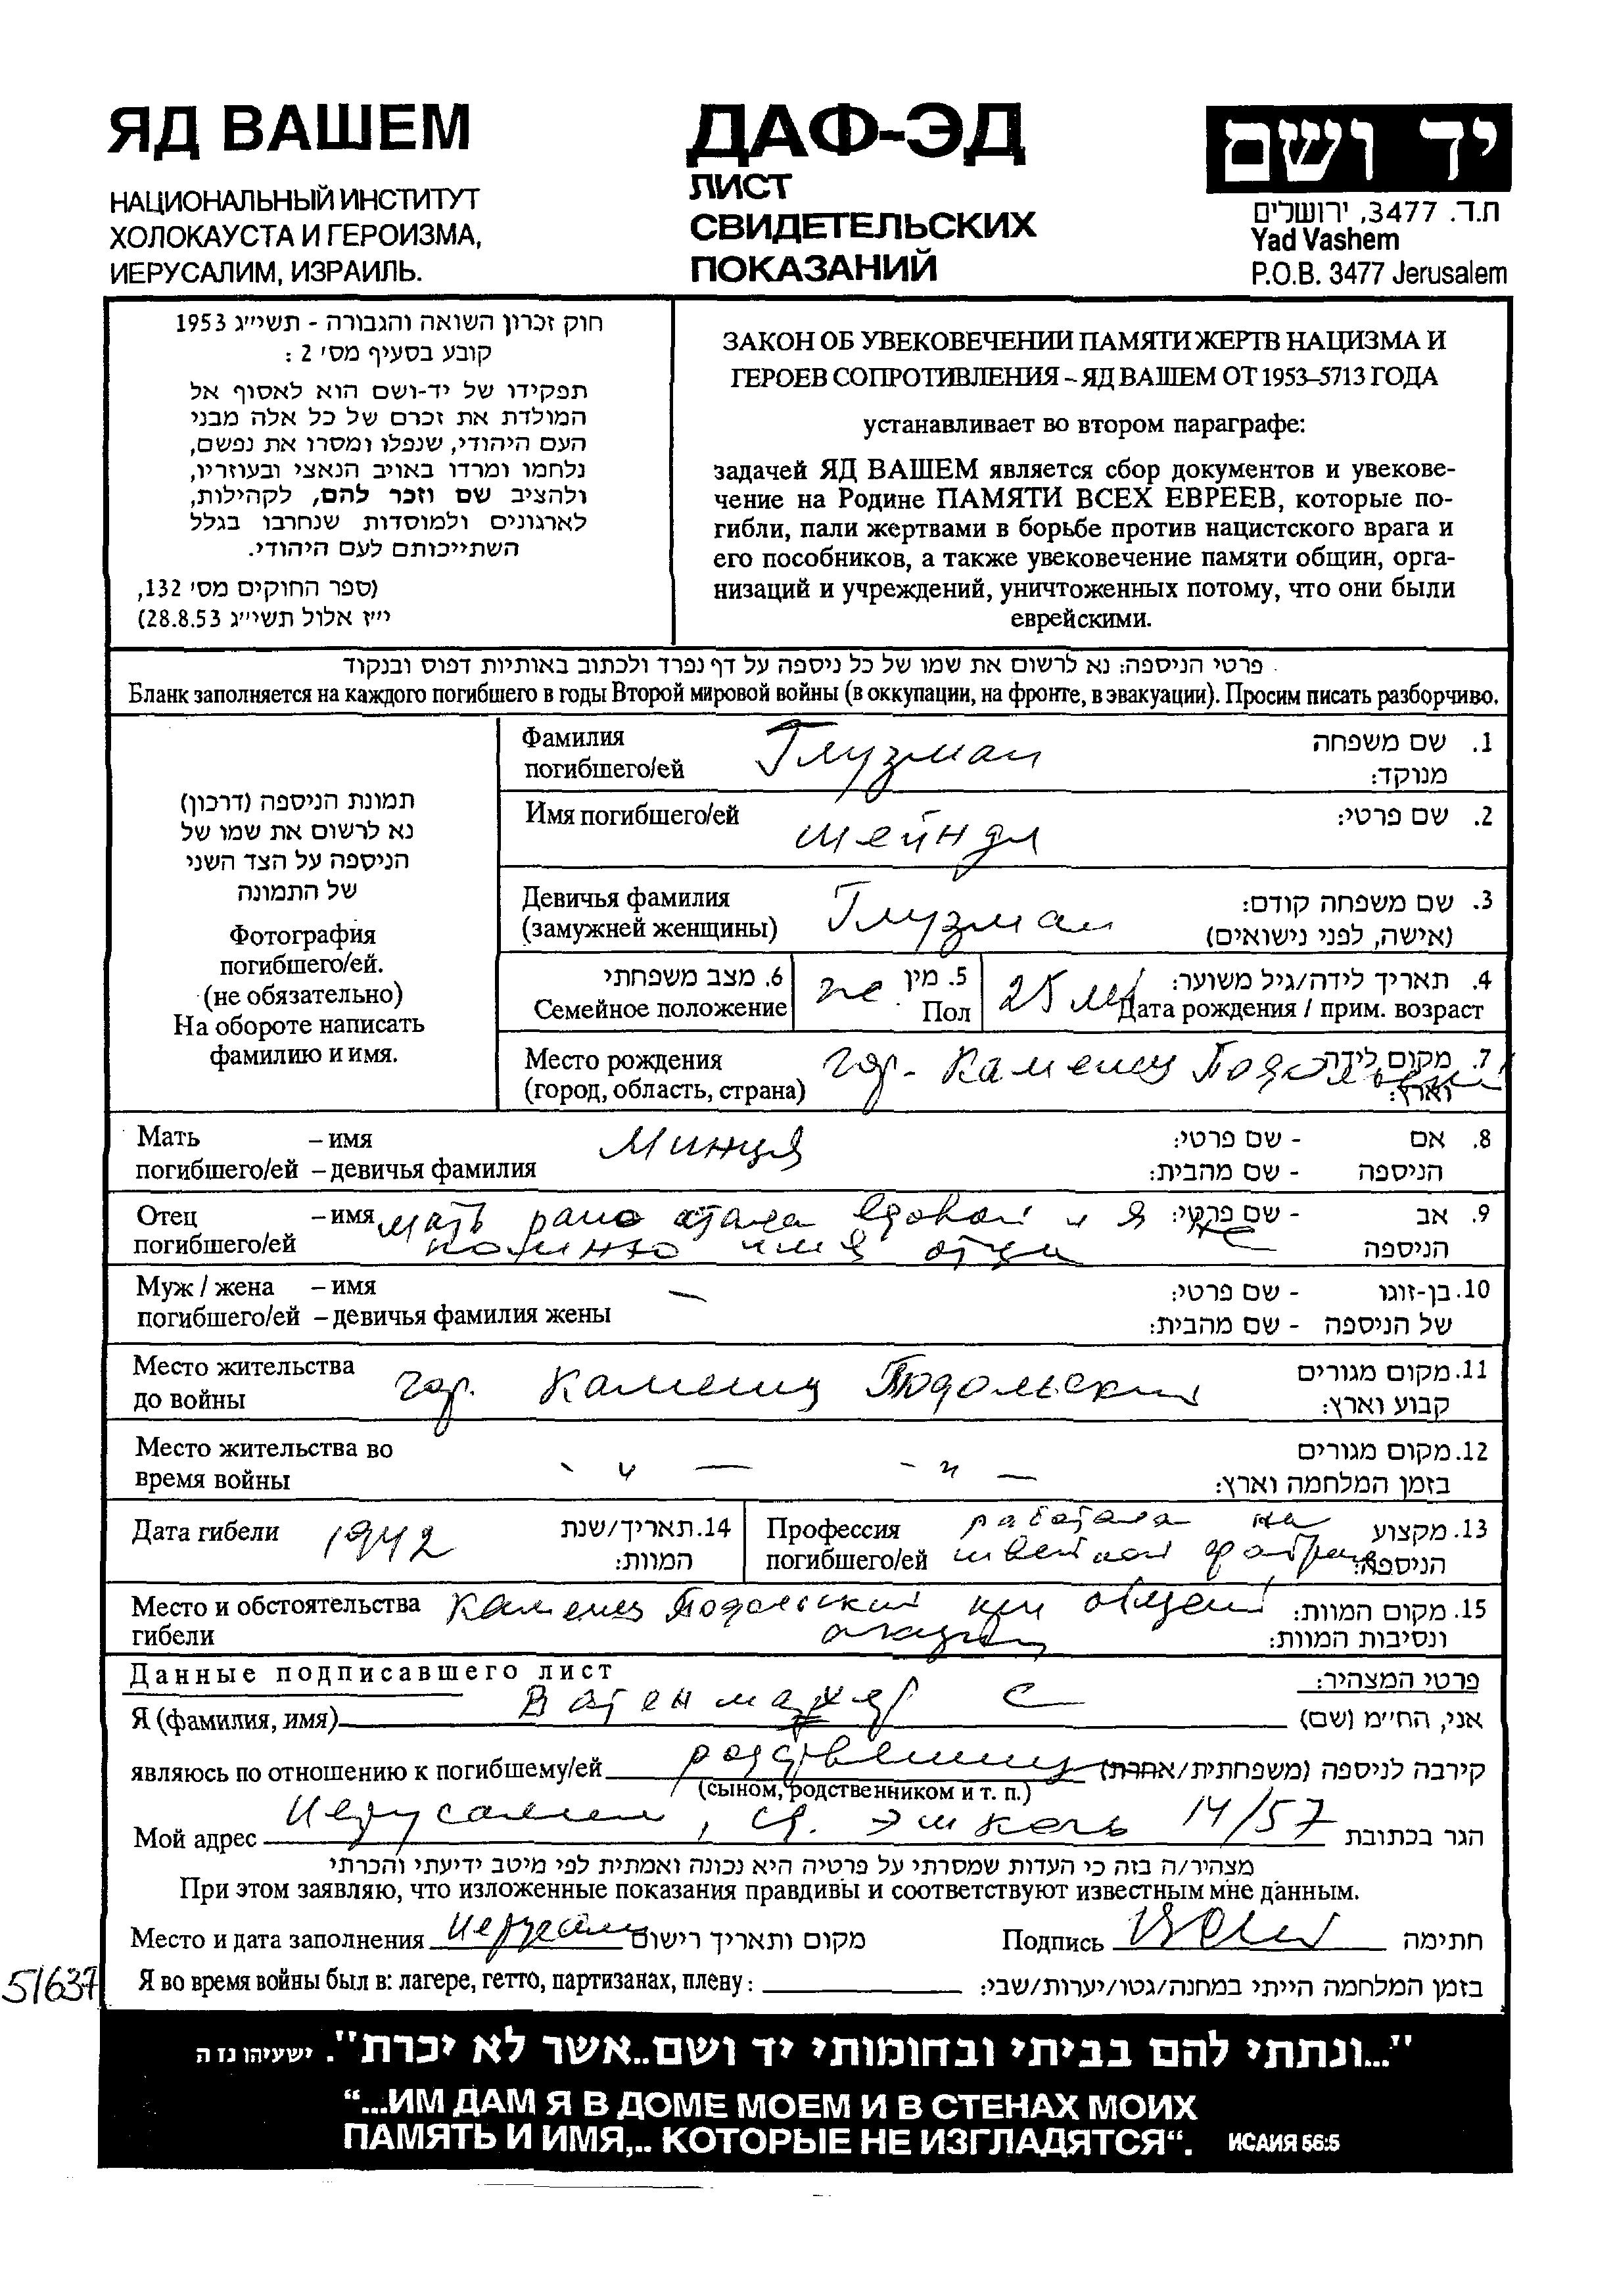 ЯД ВАШЕМ
НАЦИОНАЛЬНЫЙ ИНСТИТУТ
ХОЛОКАУСТА И ГЕРОИЗМА,
ИЕРУСАЛИМ, ИЗРАИЛЬ.
ДАФ-ЭД
ЛИСТ
СВИДЕТЕЛЬСКИХ
ПОКАЗАНИЙ
יד ושם
ת.ד. 3477, ירושלים
Yad Vashem
P.O.B. 3477 Jerusalem
חוק זכרון השואה והגבורה - תשי״ג 1953
קובע בסעיף מס׳ 2 :
תפקידו של יד-ושם הוא לאסוף אל
המולדת את זכרם של כל אלה מבני
העם היהודי, שנפלו ומסרו את נפשם,
נלחמו ומרדו באויב הנאצי ובעוזריו,
ולהציב שם וזכר להם, לקהילות,
לארגונים ולמוסדות שנחרבו בגלל
השתייכותם לעם היהודי.
(ספר החוקים מס׳ 132,
י״ז אלול תשי״ג 28.8.53)
ЗАКОН ОБ УВЕКОВЕЧЕНИИ ПАМЯТИ ЖЕРТВ НАЦИЗМА И
ГЕРОЕВ СОПРОТИВЛЕНИЯ – ЯД ВАШЕМ ОТ 1953–5713 ГОДА
устанавливает во втором параграфе:
задачей ЯД ВАШЕМ является сбор документов и увекове-
чение на Родине ПАМЯТИ ВСЕХ ЕВРЕЕВ, которые по-
гибли, пали жертвами в борьбе против нацистского врага и
его пособников, а также увековечение памяти общин, орга-
низаций и учреждений, уничтоженных потому, что они были
еврейскими.
פרטי הניספה: נא לרשום את שמו של כל ניספה על דף נפרד ולכתוב באותיות דפוס ובנקוד
Бланк заполняется на каждого погибшего в годы Второй мировой войны (в оккупации, на фронте, в эвакуации). Просим писать разборчиво.
תמונת הניספה (דרכון)
נא לרשום את שמו של
הניספה על הצד השני
של התמונה
Фотография
погибшего/ей.
(не обязательно)
На обороте написать
фамилию и имя.
Фамилия
погибшего/ей Глузман
1. שם משפחה
מנוקד:
Имя погибшего/ей Шейндл
2. שם פרטי:
Девичья фамилия
(замужней женщины) Глузман
3. שם משפחה קודם:
(אישה, לפני נישואים)
6. מצב משפחתי
Семейное положение
5. מין
Пол же
4. תאריך לידה/גיל משוער:
25 лет Дата рождения / прим. возраст
Место рождения
(город, область, страна) гор. Каменец Подольский
7. מקום לידה
וארץ:
Мать – имя Минця
погибшего/ей – девичья фамилия
8. אם - שם פרטי:
הניספה - שם מהבית:
Отец – имя мать рано стала вдовой и я не
погибшего/ей помню имя отца
9. אב - שם פרטי:
הניספה
Муж / жена – имя —
погибшего/ей – девичья фамилия жены
10. בן-זוגו - שם פרטי:
של הניספה - שם מהבית:
Место жительства
до войны гор. Каменец Подольский
11. מקום מגורים
קבוע וארץ:
Место жительства во
время войны - 〃 — - 〃 —
12. מקום מגורים
בזמן המלחמה וארץ:
Дата гибели 1942
14. תאריך/שנת
המוות:
Профессия работала на
погибшего/ей швейной фабрике
13. מקצוע
הניספה:
Место и обстоятельства Каменец Подольский при общей
гибели акции
15. מקום המוות:
ונסיבות המוות:
Данные подписавшего лист
פרטי המצהיר:
Я (фамилия, имя) Ватенмахер С
אני, הח״מ (שם)
являюсь по отношению к погибшему/ей родственниц
(сыном, родственником и т. п.)
קירבה לניספה (משפחתית/אחרת)
Мой адрес Иерусалим, ул. Эшколь 14/57
הגר בכתובת
מצהיר/ה בזה כי העדות שמסרתי על פרטיה היא נכונה ואמתית לפי מיטב ידיעתי והכרתי
При этом заявляю, что изложенные показания правдивы и соответствуют известным мне данным.
Место и дата заполнения Иерусалим
מקום ותאריך רישום
Подпись
חתימה
51637
Я во время войны был в: лагере, гетто, партизанах, плену:
בזמן המלחמה הייתי במחנה/גטו/יערות/שבי:
"...ונתתי להם בביתי ובחומותי יד ושם..אשר לא יכרת". ישעיהו נו ה
“...ИМ ДАМ Я В ДОМЕ МОЕМ И В СТЕНАХ МОИХ
ПАМЯТЬ И ИМЯ,.. КОТОРЫЕ НЕ ИЗГЛАДЯТСЯ“. ИСАИЯ 56:5